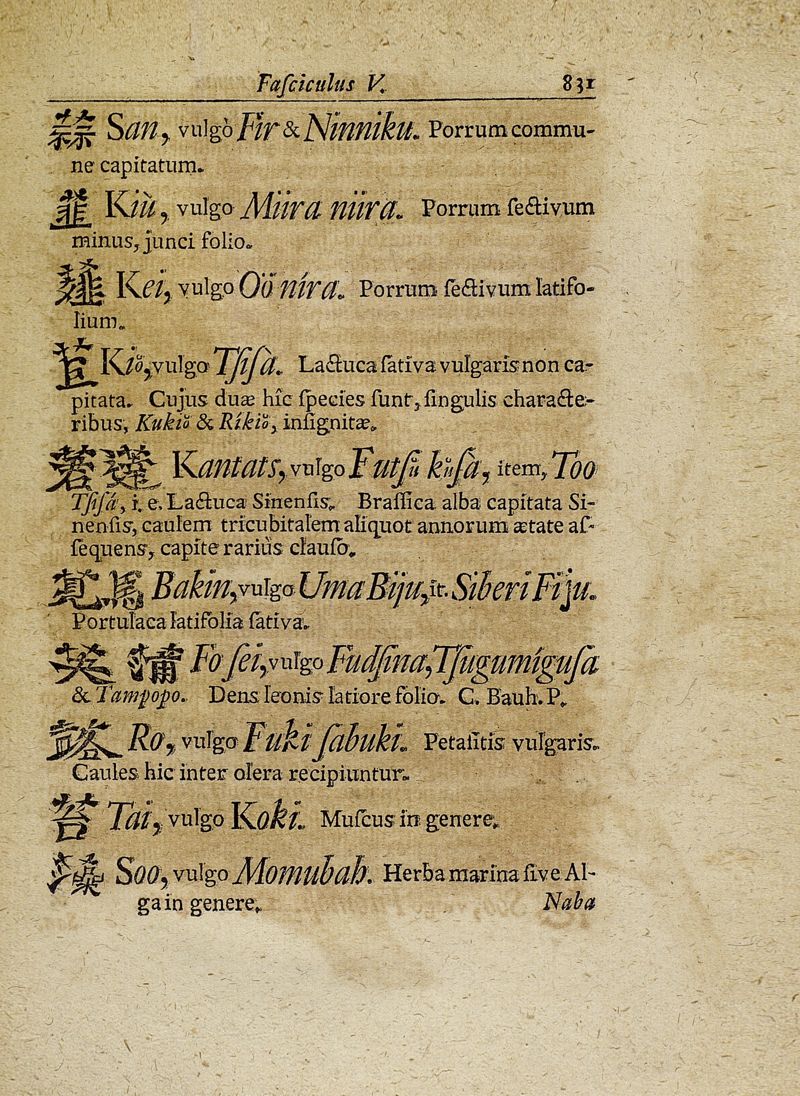 Faſciculus V. 831
蒜 San, vulgò Fir & Ninniku. Porrum commu-
ne capitatum.
韮 Kiu, vulgo Miira niira. Porrum ſectivum
minus, junci folio.
Kei, vulgo Oó nira. Porrum ſectivum latifo-
lium.
苣 Kio, vulgo Tſiſa. Lactuca ſativa vulgaris non ca-
pitata. Cujus duæ hîc ſpecies ſunt, ſingulis characte-
ribus, Kukio & Rikio, inſignitæ.
Kantats, vulgo Futſu kuſa, item, Too
Tſiſa, i. e. Lactuca Sinenſis. Braſſica alba capitata Si-
nenſis, caulem tricubitalem aliquot annorum ætate aſ-
ſequens, capite rariùs clauſo.
Bakin, vulgo Uma Biju, it. Siberi Fiju.
Portulaca latifolia ſativa.
Fo ſei, vulgo Fudſina, Tſugumiguſa
& Tampopo. Dens leonis latiore folio. C. Bauh. P.
Ro, vulgo Fuki ſabuki. Petaſitis vulgaris.
Caules hic inter olera recipiuntur.
苔 Tai, vulgo Koki. Muſcus in genere.
Soo, vulgo Momubah. Herba marina ſive Al-
ga in genere. Naba